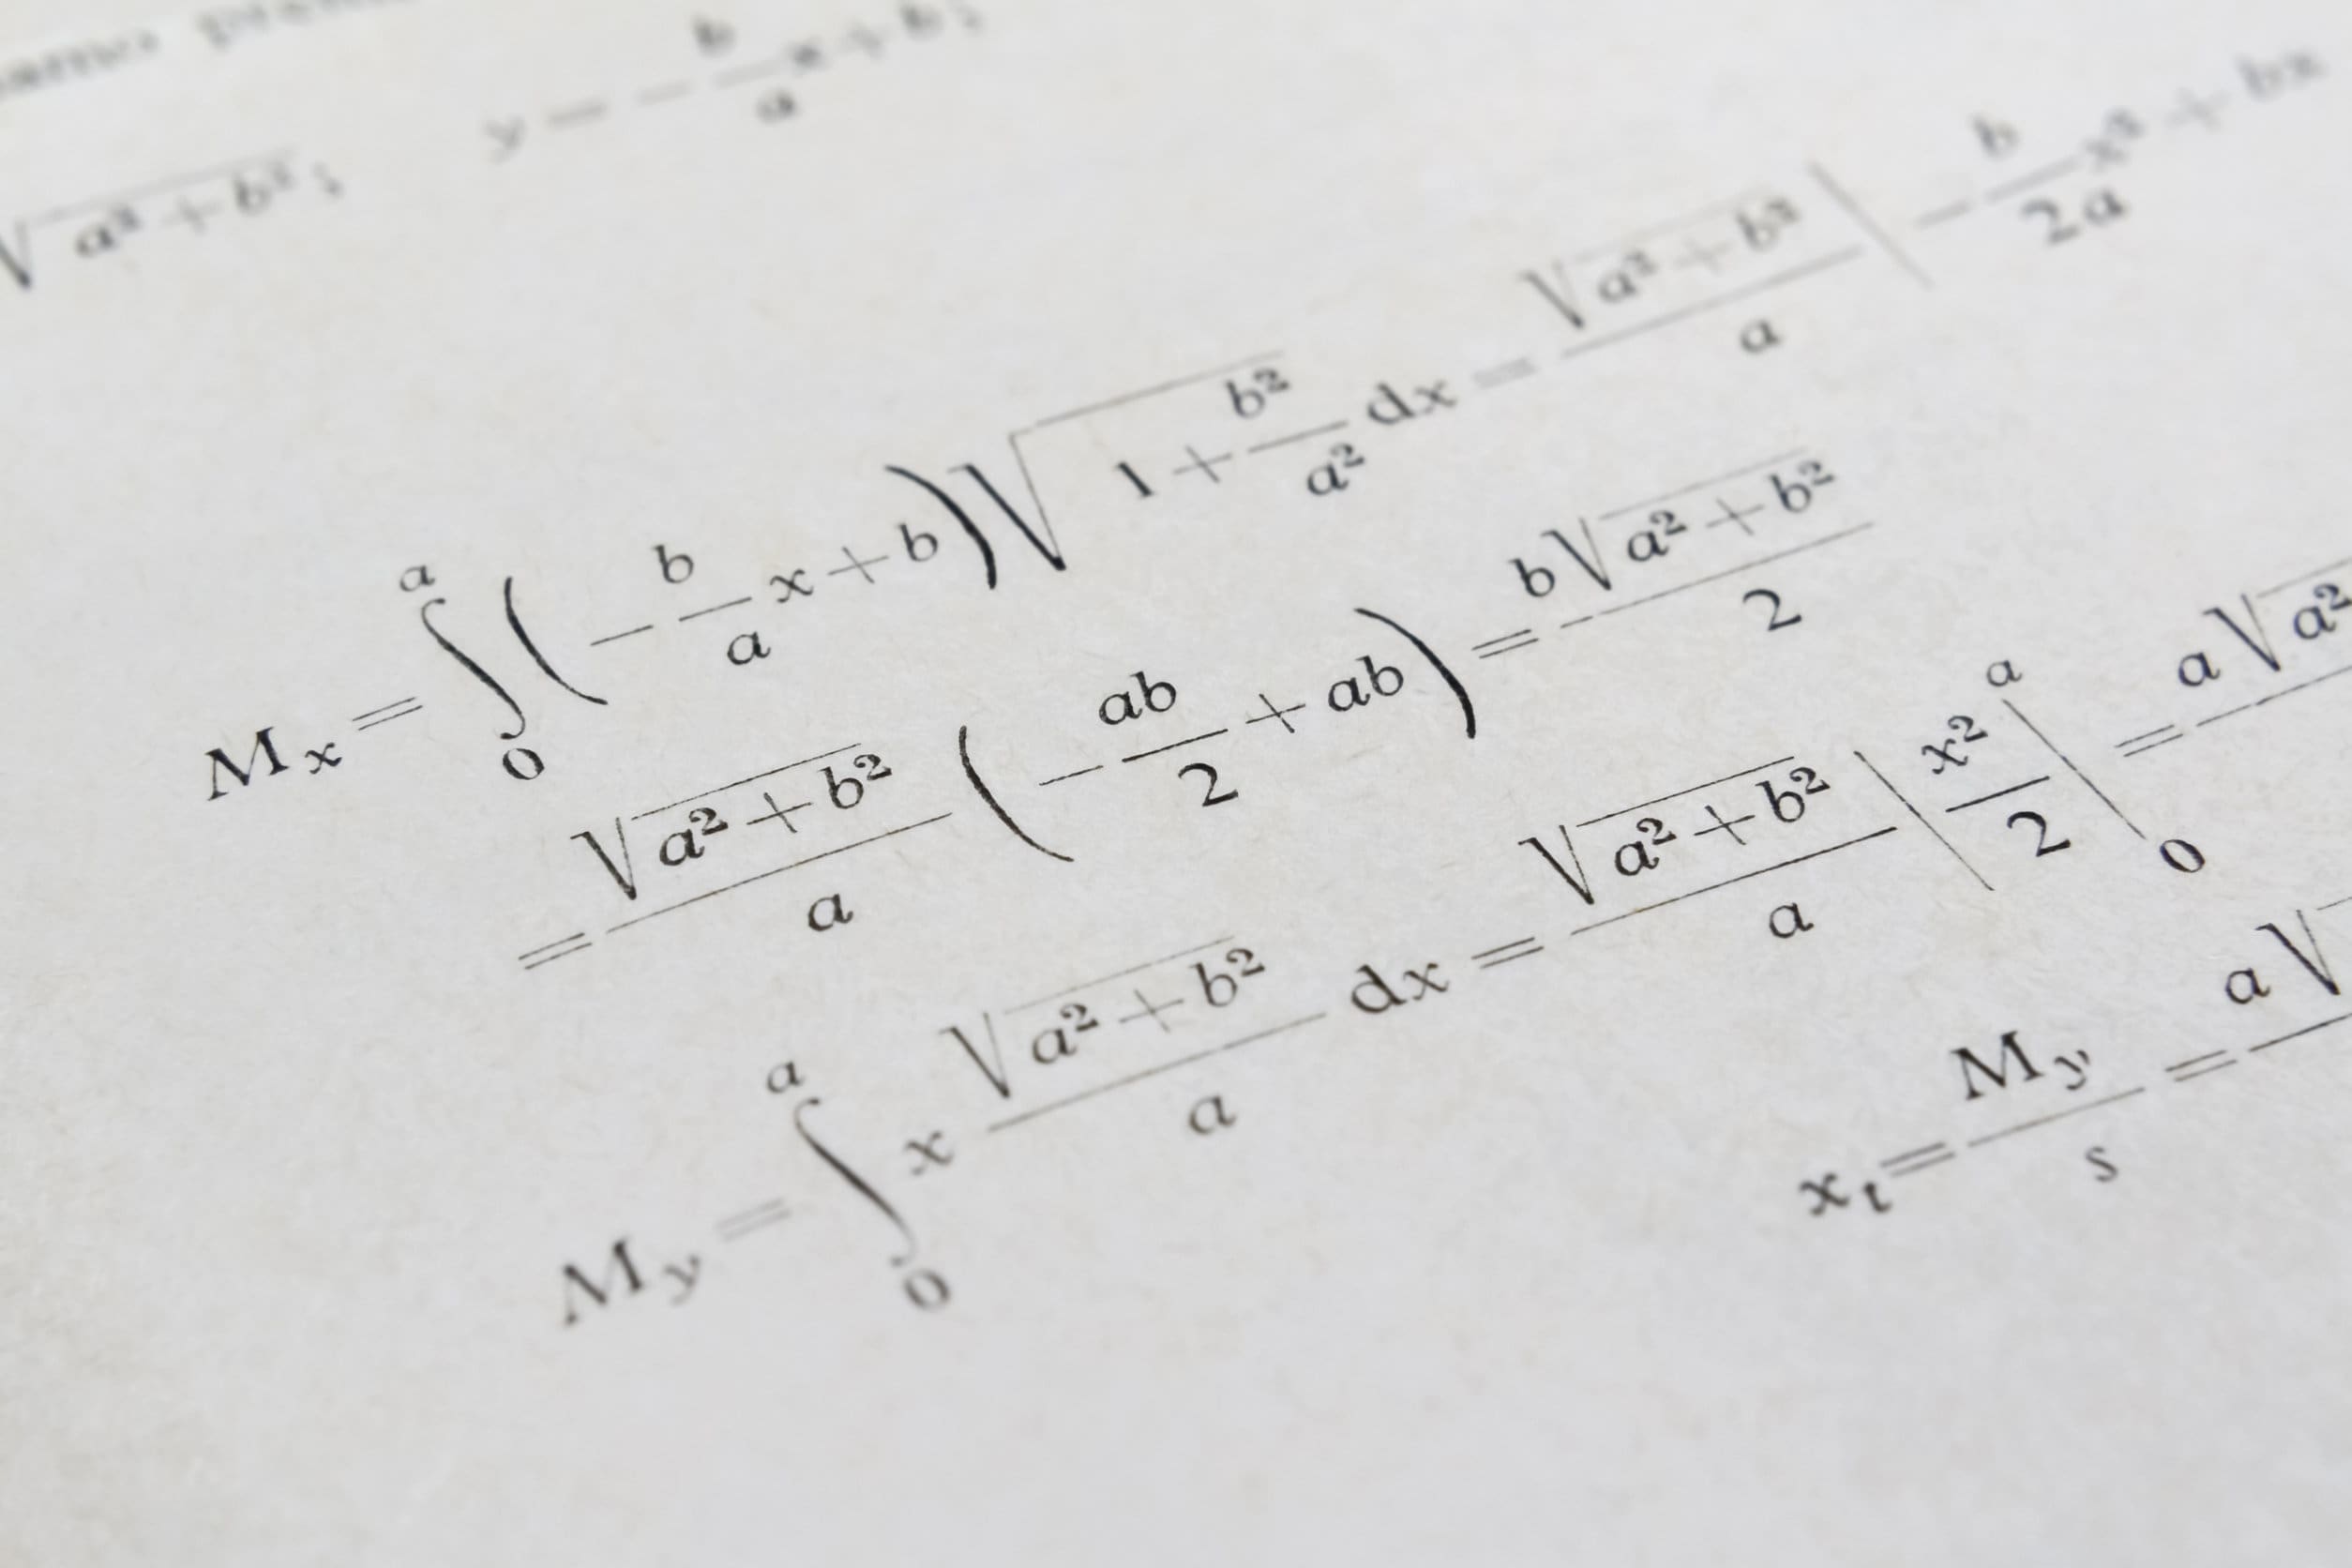 √(a² + b²);    y = −(b/a)x + b;
Mₓ = ∫₀ᵃ (−(b/a)x + b) √(1 + b²/a²) dx = (√(a² + b²)/a) | −(b/2a)x² + bx
= (√(a² + b²)/a) (−(ab/2) + ab) = b√(a² + b²)/2
M_y = ∫₀ᵃ x (√(a² + b²)/a) dx = (√(a² + b²)/a) | x²/2 |₀ᵃ = a√a²
x_t = M_y/s = a√